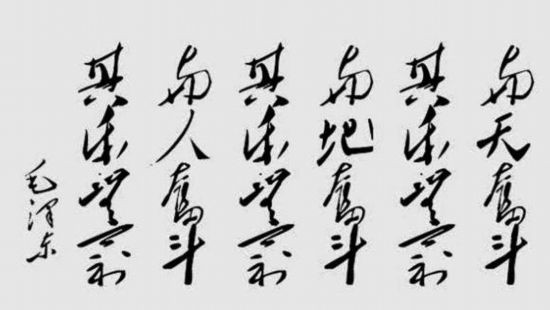 与天奋斗
其乐无穷
与地奋斗
其乐无穷
与人奋斗
其乐无穷
毛泽东